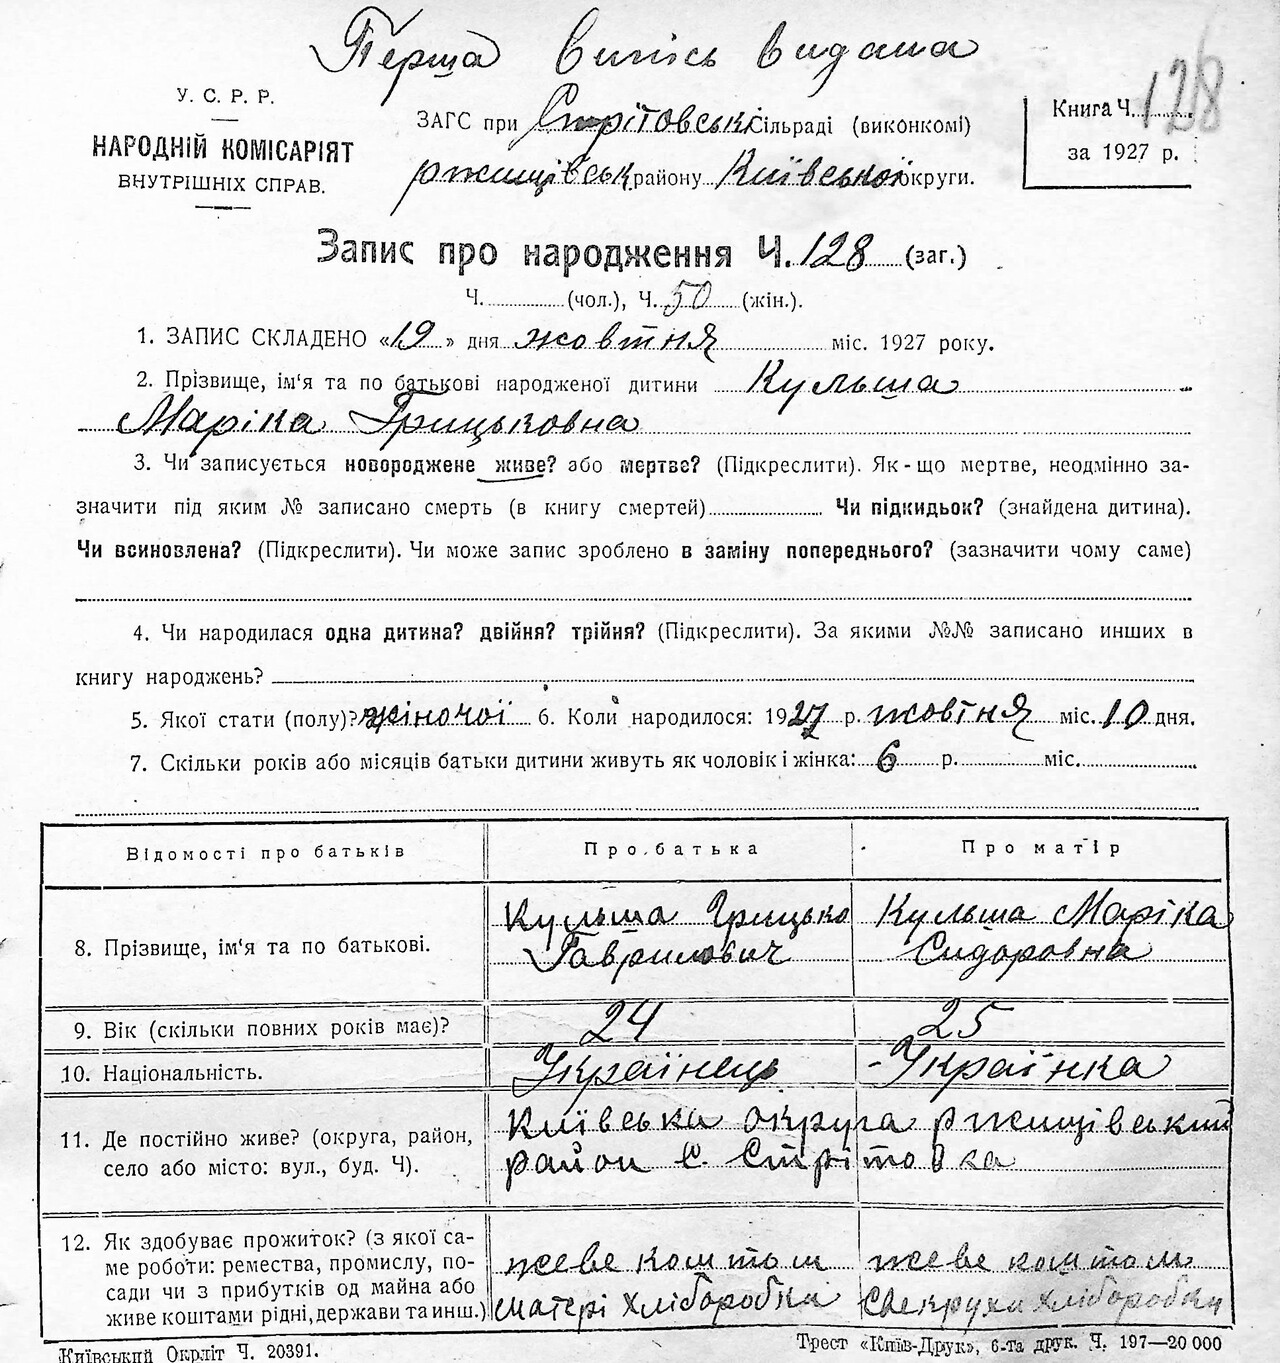 Перша випісь видана
У. С. Р. Р.
НАРОДНІЙ КОМІСАРІЯТ
ВНУТРІШНІХ СПРАВ.
ЗАГС при Стрітовські сільраді (виконкомі)
ржищівськ району Київської округи.
Книга Ч. 128
за 1927 р.
Запис про народження Ч. 128 (заг.)
Ч. (чол.), Ч. 50 (жін.).
1. ЗАПИС СКЛАДЕНО «19» дня жовтня міс. 1927 року.
2. Прізвище, ім'я та по батькові народженої дитини Кульша
Маріка Грицьковна
3. Чи записується новороджене живе? або мертве? (Підкреслити). Як-що мертве, неодмінно за-
значити під яким № записано смерть (в книгу смертей) Чи підкидьок? (знайдена дитина).
Чи всиновлена? (Підкреслити). Чи може запис зроблено в заміну попереднього? (зазначити чому саме)
4. Чи народилася одна дитина? двійня? трійня? (Підкреслити). За якими №№ записано инших в
книгу народжень?
5. Якої стати (полу)? жіночої 6. Коли народилося: 1927 р. жовтня міс. 10 дня.
7. Скільки років або місяців батьки дитини живуть як чоловік і жінка: 6 р. міс.
Відомості про батьків Про батька Про матір
8. Прізвище, ім'я та по батькові. Кульша Грицько Гаврилович Кульша Маріка Сидоровна
9. Вік (скільки повних років має)? 24 25
10. Національність. Українець Українка
11. Де постійно живе? (округа, район,
село або місто: вул., буд. Ч).
Київська округа ржищівський
район с. Стрітовка
12. Як здобуває прожиток? (з якої са-
ме роботи: ремества, промислу, по-
сади чи з прибутків од майна або
живе коштами рідні, держави та инш.)
жеве коштом
матері хліборобка
жеве коштом
свекрухи хліборобки
Київський Окрліт Ч. 20391.
Трест «Київ-Друк», 6-та друк. Ч. 197—20 000